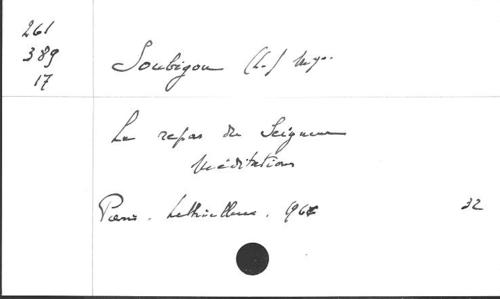 261
389
17
Soubigou (L.) Mgr.
Le repas du Seigneur
Méditations
Paris. Lethielleux. 1967
32